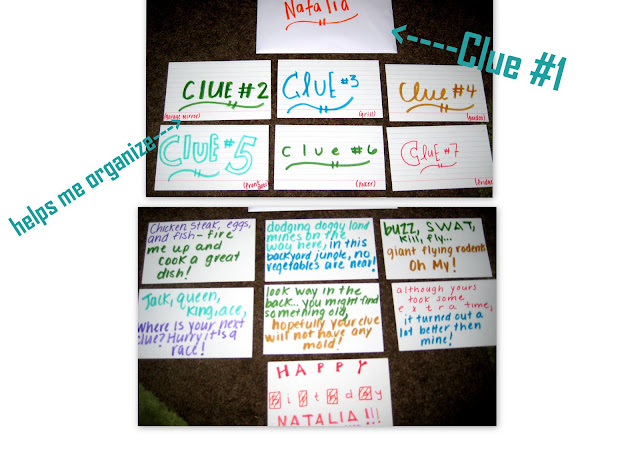 Natalia
<-----Clue #1
CLUE #2
CLUE #3
(Grill)
Clue #4
helps me organize--->
CLUE #5
Clue #6
(Poker)
CLUE #7
(Fridge)
Chicken, steak, eggs,
and fish-fire
me up and
cook a great
dish!
dodging doggy land
mines on the
way here, in this
backyard jungle, no
vegetables are near!
buzz, SWAT,
kill, fly...
giant flying rodents
Oh My!
Jack, queen,
king, ace,
Where is your next
clue? Hurry it's a
race!
look way in the
back... you might find
something old,
hopefully your clue
will not have any
mold!
although yours
took some
extra time,
it turned out a
lot better then
mine!
HAPPY
i t d y
NATALIA!!!